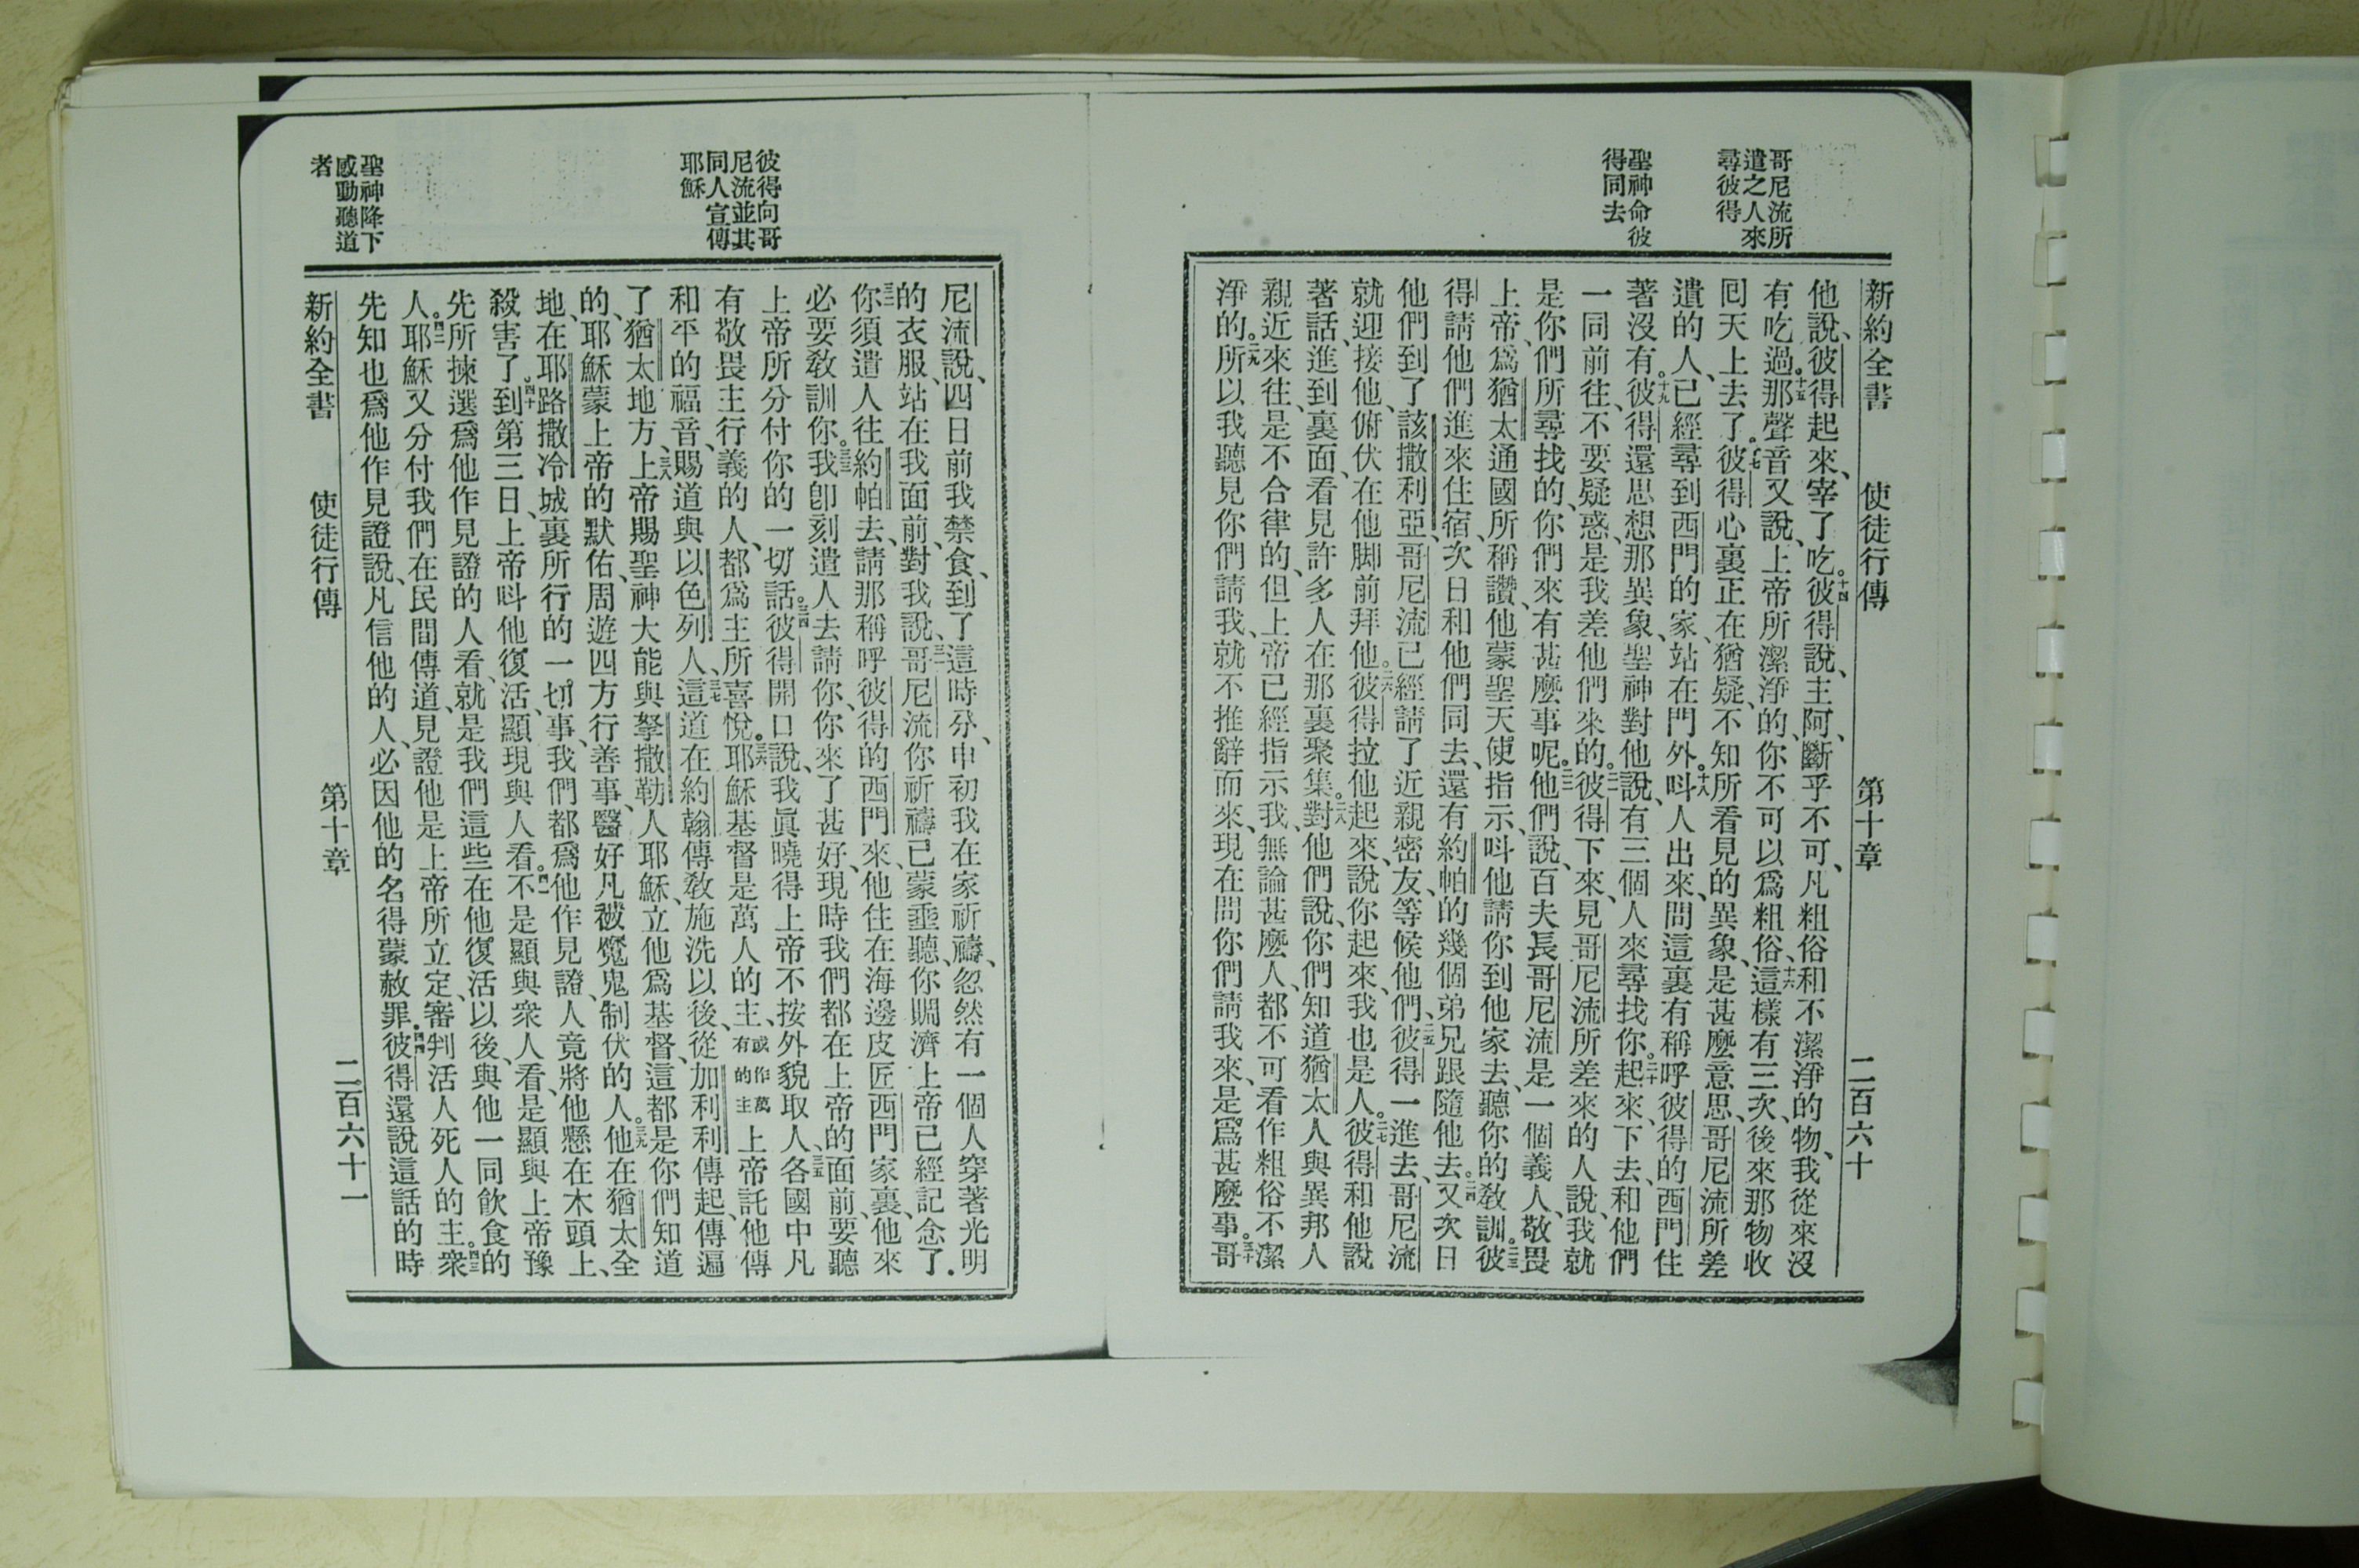 哥尼流所
遣之人來
尋彼得
聖神命彼
得同去
新約全書　使徒行傳　第十章　二百六十
他說、彼得起來、宰了吃。十四彼得說、主阿、斷乎不可、凡粗俗和不潔淨的物、我從來沒
有吃過。十五那聲音又說、上帝所潔淨的、你不可以爲粗俗、十六這樣有三次、後來那物收
囘天上去了。十七彼得心裏正在猶疑、不知所看見的異象、是甚麼意思、哥尼流所差
遣的人、已經尋到西門的家、站在門外。十八呌人出來、問這裏有稱呼彼得的西門住
著沒有。十九彼得還思想那異象、聖神對他說、有三個人來尋找你。二十起來、下去、和他們
一同前往、不要疑惑、是我差他們來的。二一彼得下來、見哥尼流所差來的人、說、我就
是你們所尋找的、你們來有甚麼事呢。二二他們說、百夫長哥尼流是一個義人、敬畏
上帝、爲猶太通國所稱讚、他蒙聖天使指示、呌他請你到他家去、聽你的敎訓。二三彼
得請他們進來住宿、次日和他們同去、還有約帕的幾個弟兄跟隨他去。二四又次日
他們到了該撒利亞、哥尼流已經請了近親密友、等候他們、二五彼得一進去、哥尼流
就迎接他、俯伏在他脚前拜他。二六彼得拉他起來、說你起來、我也是人。二七彼得和他說
著話、進到裏面、看見許多人在那裏聚集。二八對他們說、你們知道猶太人與異邦人
親近來往、是不合律的、但上帝已經指示我、無論甚麼人、都不可看作粗俗不潔
淨的。二九所以我聽見你們請我、就不推辭而來、現在問你們請我來、是爲甚麼事。三十哥
彼得向哥
尼流並其
同人宣傳
耶穌
聖神降下
感動聽道
者
尼流說、四日前我禁食、到了這時分、申初我在家祈禱、忽然有一個人穿著光明
的衣服、站在我面前、對我說、三一哥尼流你祈禱已蒙垂聽、你賙濟上帝已經記念了。
三二你須遣人往約帕去、請那稱呼彼得的西門來、他住在海邊皮匠西門家裏、他來
必要敎訓你。三三我卽刻遣人去請你、你來了甚好、現時我們都在上帝的面前、要聽
上帝所分付你的一切話。三四彼得開口說、我眞曉得上帝不按外貌取人、三五各國中凡
有敬畏主行義的人、都爲主所喜悅。三六耶穌基督是萬人的主、或作萬有的主上帝託他傳
和平的福音、賜道與以色列人、三七這道在約翰傳敎施洗以後、從加利利傳起、傳遍
了猶太地方、三八上帝賜聖神大能與拏撒勒人耶穌、立他爲基督、這都是你們知道
的、耶穌蒙上帝的默佑、周遊四方行善事、醫好凡被魔鬼制伏的人。三九他在猶太全
地、在耶路撒冷城裏所行的一切事、我們都爲他作見證、人竟將他懸在木頭上、
殺害了。四十到第三日、上帝呌他復活、顯現與人看。四一不是顯與衆人看、是顯與上帝豫
先所揀選爲他作見證的人看、就是我們這些在他復活以後、與他一同飲食的
人。四二耶穌又分付我們在民間傳道、見證他是上帝所立定、審判活人死人的主。四三衆
先知也爲他作見證說、凡信他的人、必因他的名得蒙赦罪。四四彼得還說這話的時
新約全書　使徒行傳　第十章　二百六十一